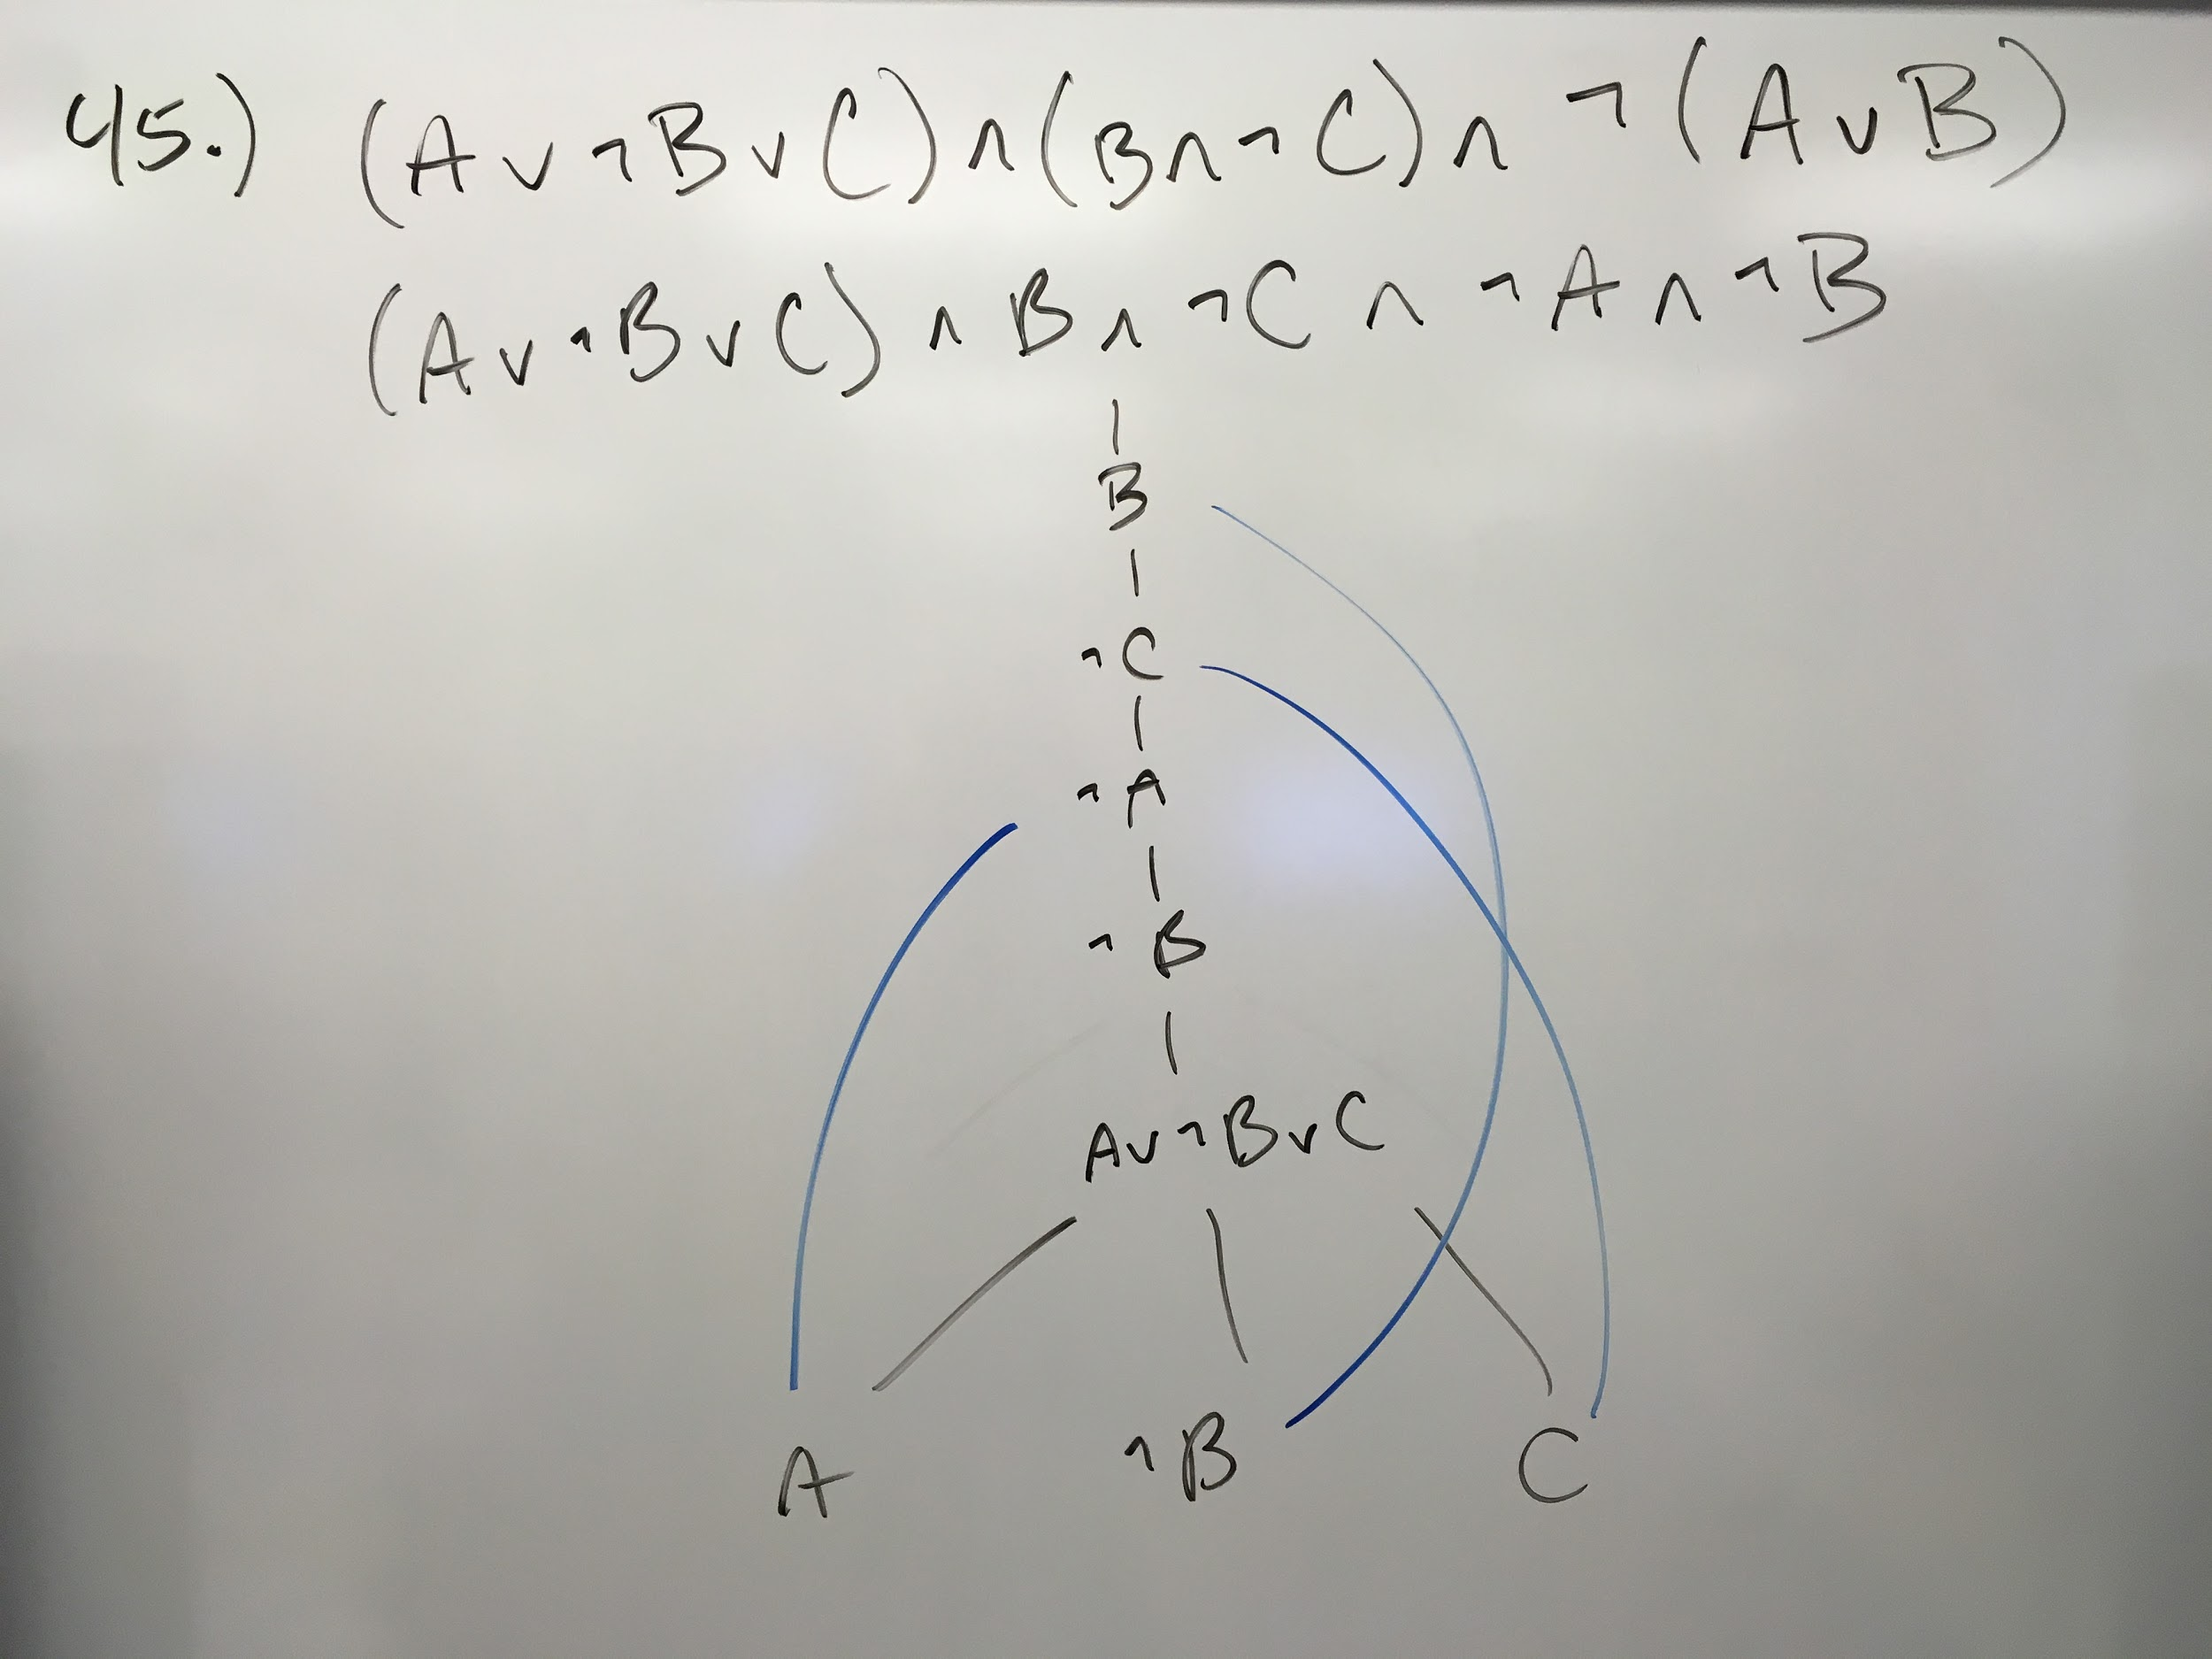 45.) (A ∨ ¬B ∨ C) ∧ (B ∧ ¬C) ∧ ¬(A ∨ B)
(A ∨ ¬B ∨ C) ∧ B ∧ ¬C ∧ ¬A ∧ ¬B
B
¬C
¬A
¬B
A ∨ ¬B ∨ C
A ¬B C